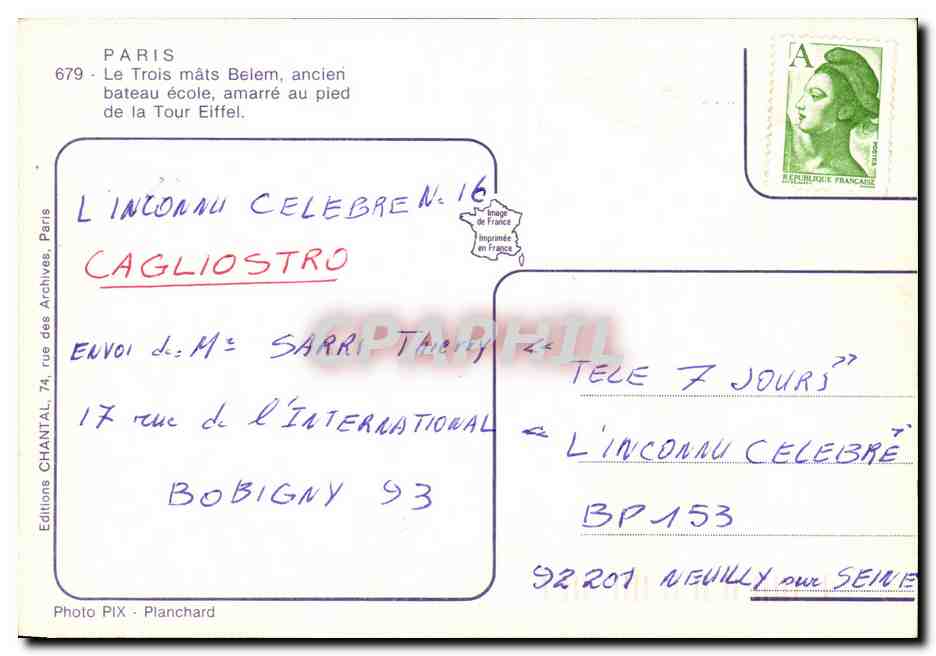 PARIS
679 - Le Trois mâts Belem, ancien
bateau école, amarré au pied
de la Tour Eiffel.
A
POSTES
REPUBLIQUE FRANCAISE
L'INCONNU CELEBRE N: 16
Image
de France
Imprimée
en France
CAGLIOSTRO
ENVOI de: Mr SARRI Thierry
17 rue de l'INTERNATIONAL
BOBIGNY 93
« TELE 7 JOURS »
« L'INCONNU CELEBRE »
BP 153
92201 NEUILLY sur SEINE
Editions CHANTAL, 74, rue des Archives, Paris
Photo PIX - Planchard
CPAPHIL